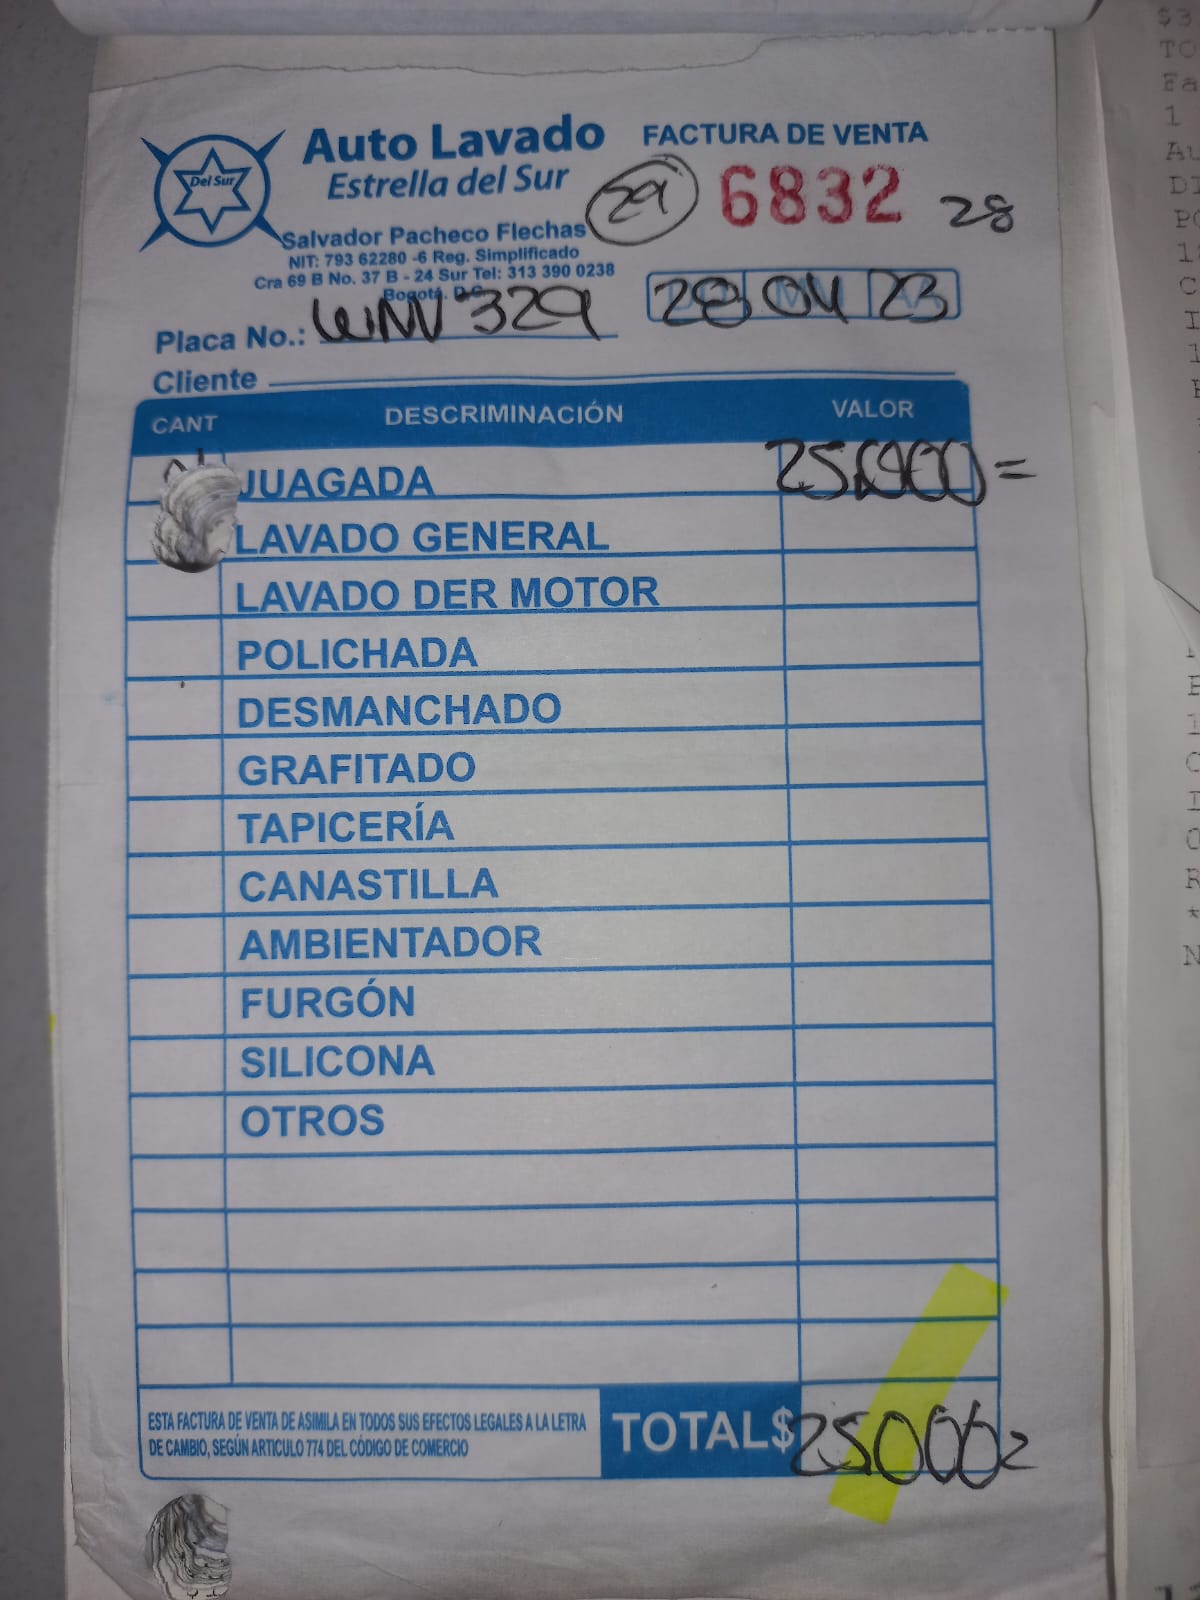 Auto Lavado
Estrella del Sur
Del Sur
FACTURA DE VENTA
29
6832
28
Salvador Pacheco Flechas
NIT: 793 62280 -6 Reg. Simplificado
Cra 69 B No. 37 B - 24 Sur Tel: 313 390 0238
Bogotá. D.C.
28 04 23
Placa No.: WNV 329
Cliente
CANT DESCRIMINACIÓN VALOR
01 JUAGADA 25.000=
LAVADO GENERAL
LAVADO DER MOTOR
POLICHADA
DESMANCHADO
GRAFITADO
TAPICERÍA
CANASTILLA
AMBIENTADOR
FURGÓN
SILICONA
OTROS
ESTA FACTURA DE VENTA DE ASIMILA EN TODOS SUS EFECTOS LEGALES A LA LETRA
DE CAMBIO, SEGÚN ARTICULO 774 DEL CÓDIGO DE COMERCIO
TOTAL $ 25.000=